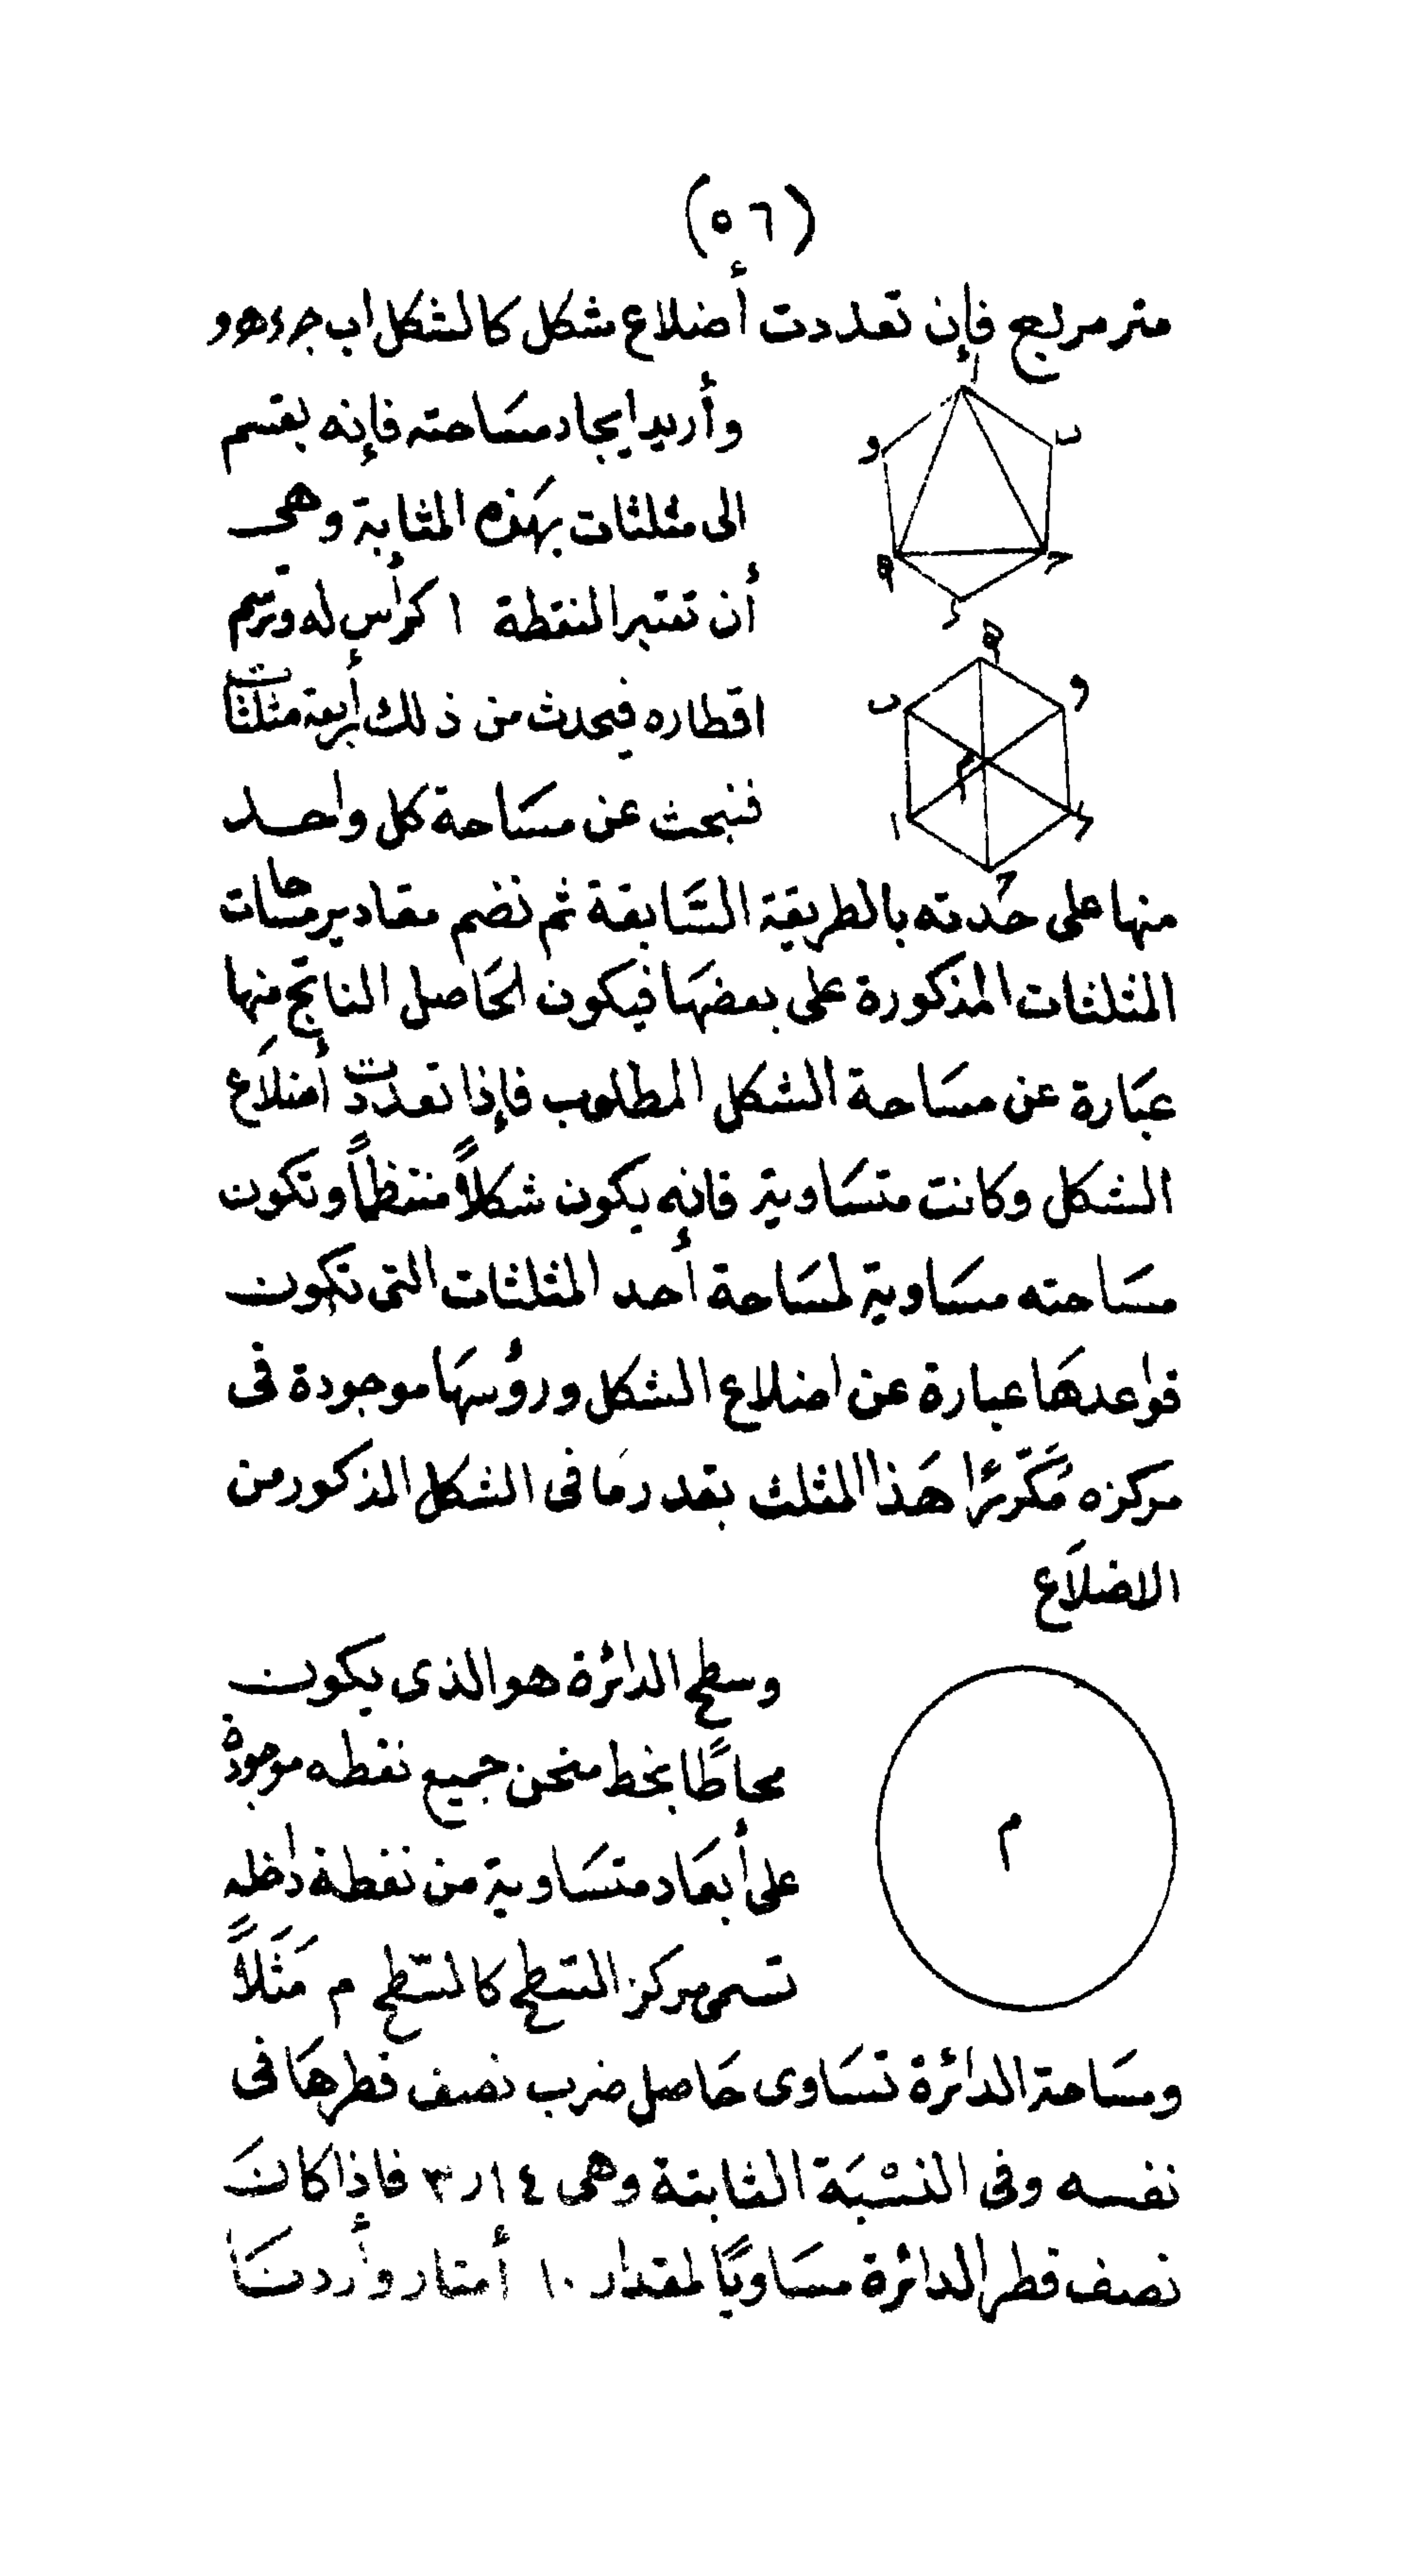 (٥٦)
متر مربع فإن تعددت أضلاع شكل كالشكل اب جـ د هـ و
وأريد ايجاد مسَاحته فإنه يقسم
الى مثلثات بهَذه المثابة وهى
أن تعتبر النقطة ا كرأس له وترسم
اقطاره فيحدث من ذلك أربعة مثلثات
فنبحث عن مسَاحة كل واحد
منها على حَدته بالطريقة السَّابقة ثم نضم مقادير مسَاحات
المثلثات المذكورة على بعضهَا فيكون الحَاصل الناتج منها
عبَارة عن مسَاحة الشكل المطلوب فإذا تعددت أضلاَع
الشكل وكانت متسَاوية فانه يكون شكلاً منتظماً وتكون
مسَاحته مسَاوية لمسَاحة أحد المثلثات التى تكون
قواعدهَا عبارة عن اضلاع الشكل ورؤسهَا موجودة فى
مركزه مُكَرّرًا هَذا المثلث بقدر مَا فى الشكل المذكور من
الاضلاَع
ا
ب
و
هـ
جـ
د
هـ
ب
و
م
ا
د
جـ
وسطح الدائرة هو الذى يكون
محاطًا بخط منحن جميع نقطه موجودة
على أبعَاد متسَاوية من نقطة داخله
تسمى مركز السّطح كالسّطح م مَثَلاً
م
ومسَاحة الدائرة تسَاوى حَاصل ضرب نصف قطرهَا فى
نفسه وفى النسْبَة الثابتة وهى ١٤ر٣ فاذا كانَ
نصف قطر الدائرة مسَاويًا لمقدار ١٠ أمتار وأردنَا